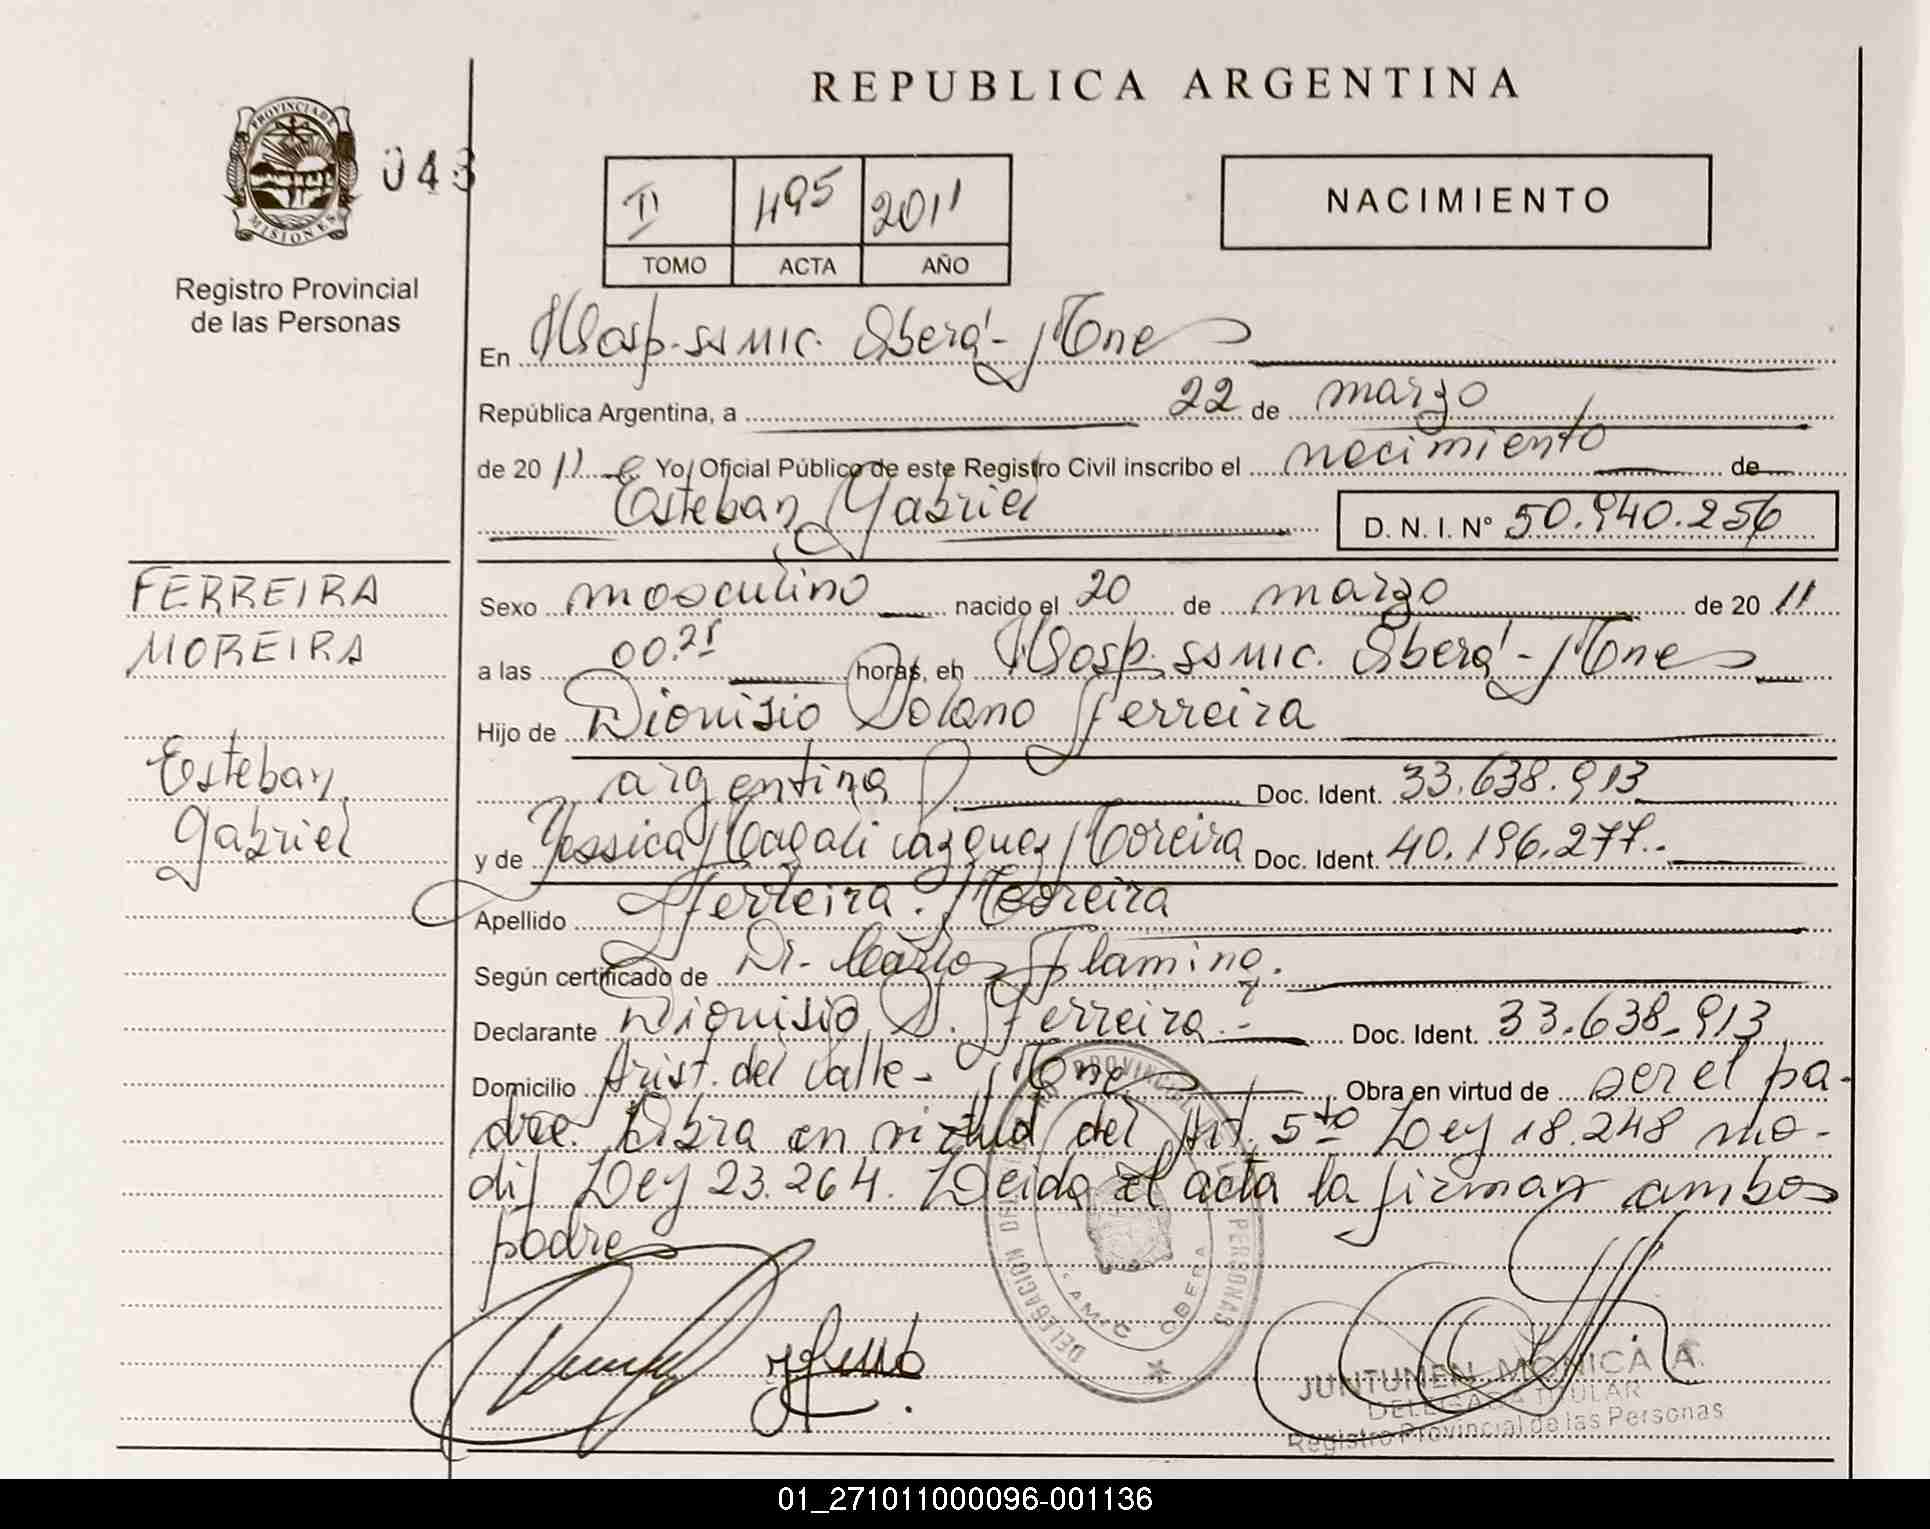 REPUBLICA ARGENTINA
PROVINCIA DE
MISIONES
043
Registro Provincial
de las Personas
II 495 2011
TOMO ACTA AÑO
NACIMIENTO
En Hosp. SSMIC. Oberá - Mnes
República Argentina, a 22 de marzo
de 20 11 Yo, Oficial Público de este Registro Civil inscribo el nacimiento de
Esteban Gabriel
D. N. I. N° 50.940.256
FERREIRA
MOREIRA
Esteban
Gabriel
Sexo masculino nacido el 20 de marzo de 20 11
a las 00.25 horas, en Hosp. SSMIC. Oberá - Mnes
Hijo de Dionisio Solano Ferreira
argentina Doc. Ident. 33.638.913
y de Yessica Magali Vazquez Moreira Doc. Ident. 40.196.277.-
Apellido Ferreira. Moreira
Según certificado de Dr. Carlos Flamino.
Declarante Dionisio S. Ferreira.- Doc. Ident. 33.638.913
Domicilio Arist. del Valle - Mnes Obra en virtud de ser el pa-
dre. Obra en virtud del Art. 5to Ley 18.248 mo-
dif Ley 23.264. Leida el acta la firman ambos
padres
DELEGACION DEL REGISTRO PROVINCIAL DE LAS PERSONAS
OBERA
JUNTUNEN MONICA A.
DELEGADA TITULAR
Registro Provincial de las Personas
01_271011000096-001136